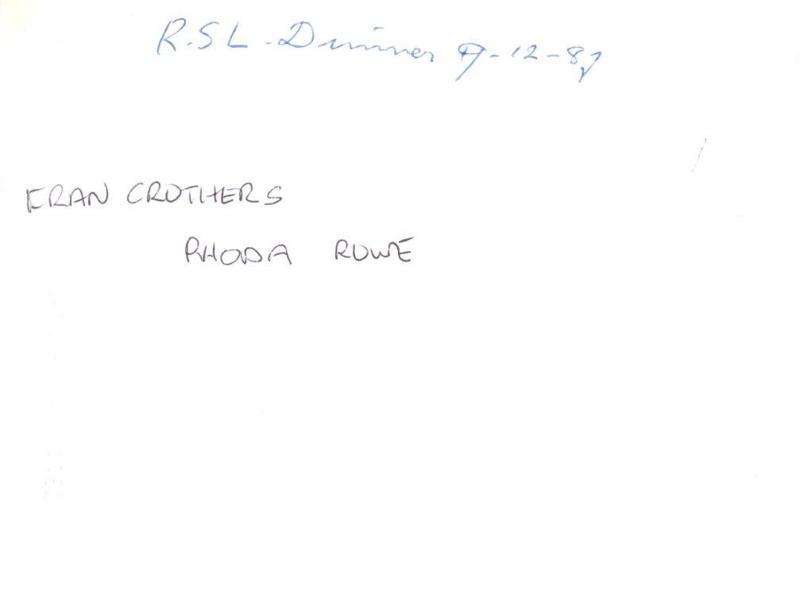 R.S L - Dinner 9-12-89
FRAN CROTHERS
RHODA ROWE